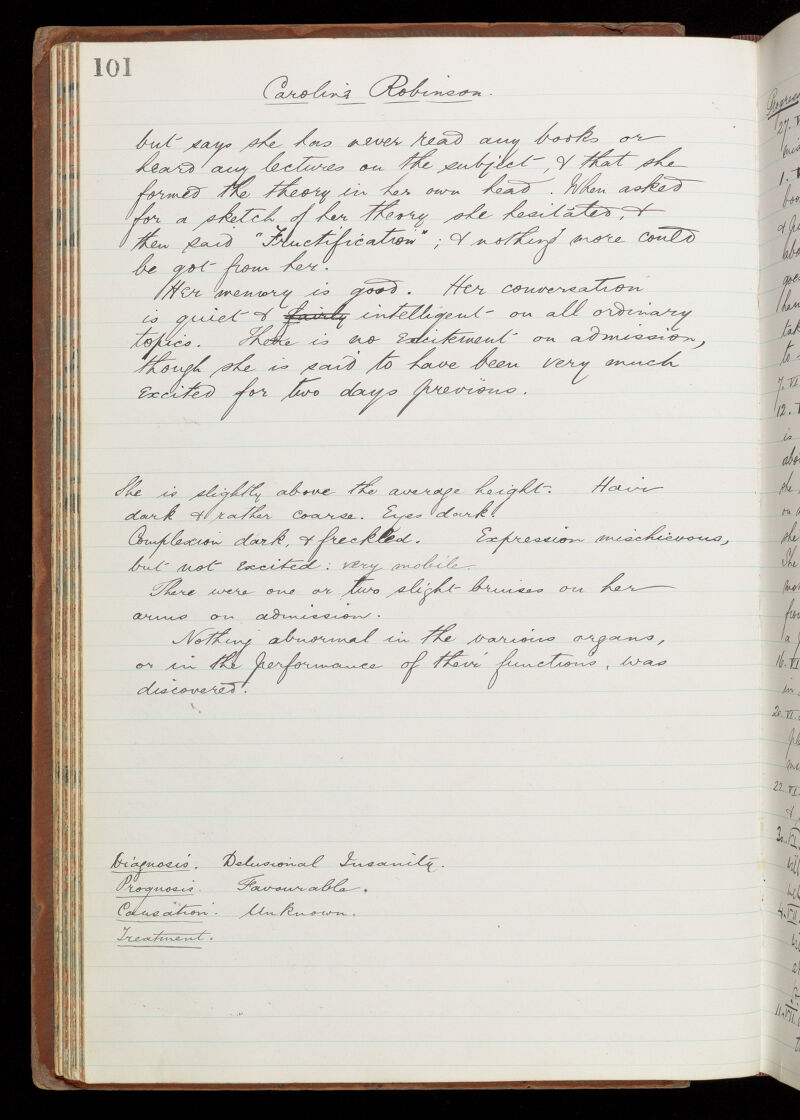 101
Caroline Robinson.
but says she has never read any books or
heard any lectures on the subject, & that she
formed the theory in her own head. When asked
for a sketch of her theory she hesitated, &
then said "Fructification"; & nothing more could
be got from her.
Her memory is good. Her conversation
is quiet & fairly intelligent on all ordinary
topics. There is no excitement on admission,
though she is said to have been very much
excited for two days previous.
She is slightly above the average height. Hair
dark & rather coarse. Eyes dark.
Complexion dark, & freckled. Expression mischievous,
but not excited: very mobile.
There were one or two slight bruises on her
arms on admission.
Nothing abnormal in the various organs,
or in the performance of their functions, was
discovered.
Diagnosis. Delusional Insanity.
Prognosis. Favourable.
Causation. Unknown.
Treatment.